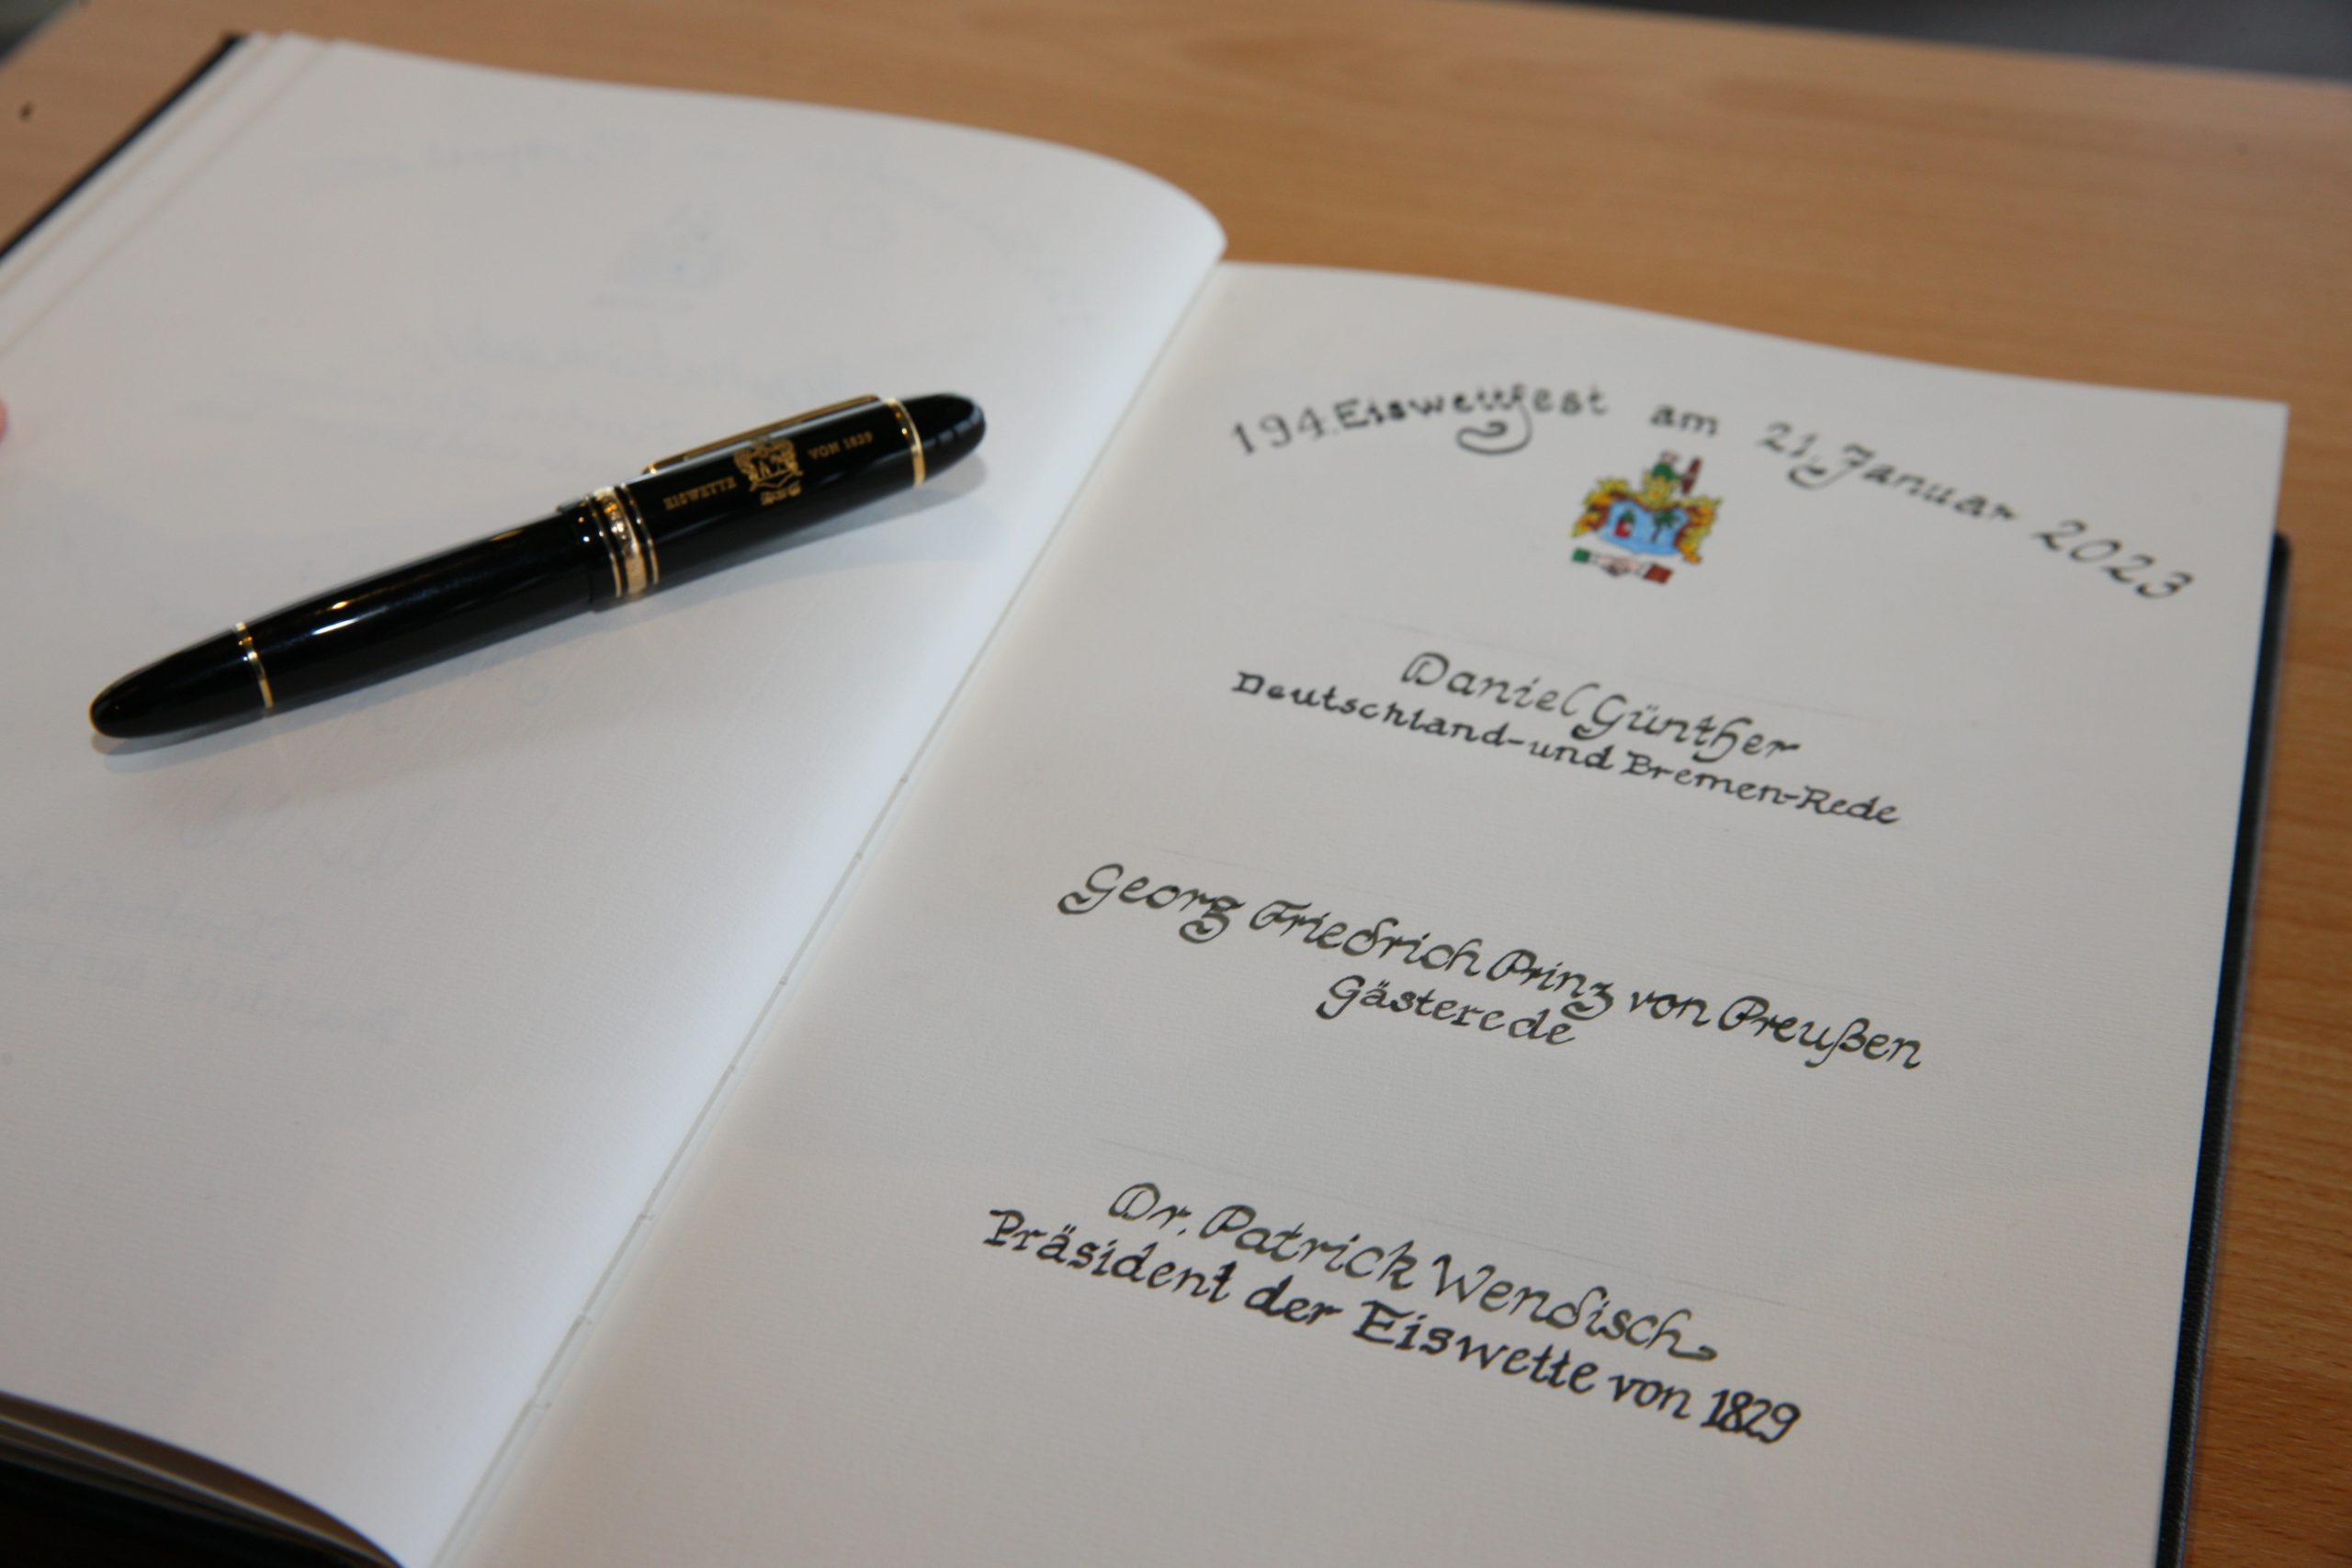 EISWETTE VON 1829
194. Eiswettfest am 21. Januar 2023
Daniel Günther
Deutschland-und Bremen-Rede
Georg Friedrich Prinz von Preußen
Gästerede
Dr. Patrick Wendisch
Präsident der Eiswette von 1829